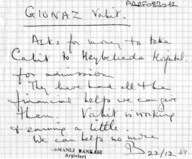 GIONAZ Vahit.
Asks for money to take
Cahit to Heybeliada Hospital
for admission.
They have had all the
financial helps we can give
them. Vahit is working
& earning a little.
We can help no more
OSMANLI BANKASI
22/12/